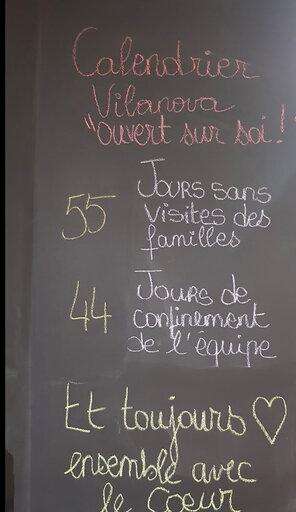 Calendrier
Vilanova
"ouvert sur soi!"
55 Jours sans
visites des
familles
44 Jours de
confinement
de l'équipe
Et toujours ♡
ensemble avec
le coeur